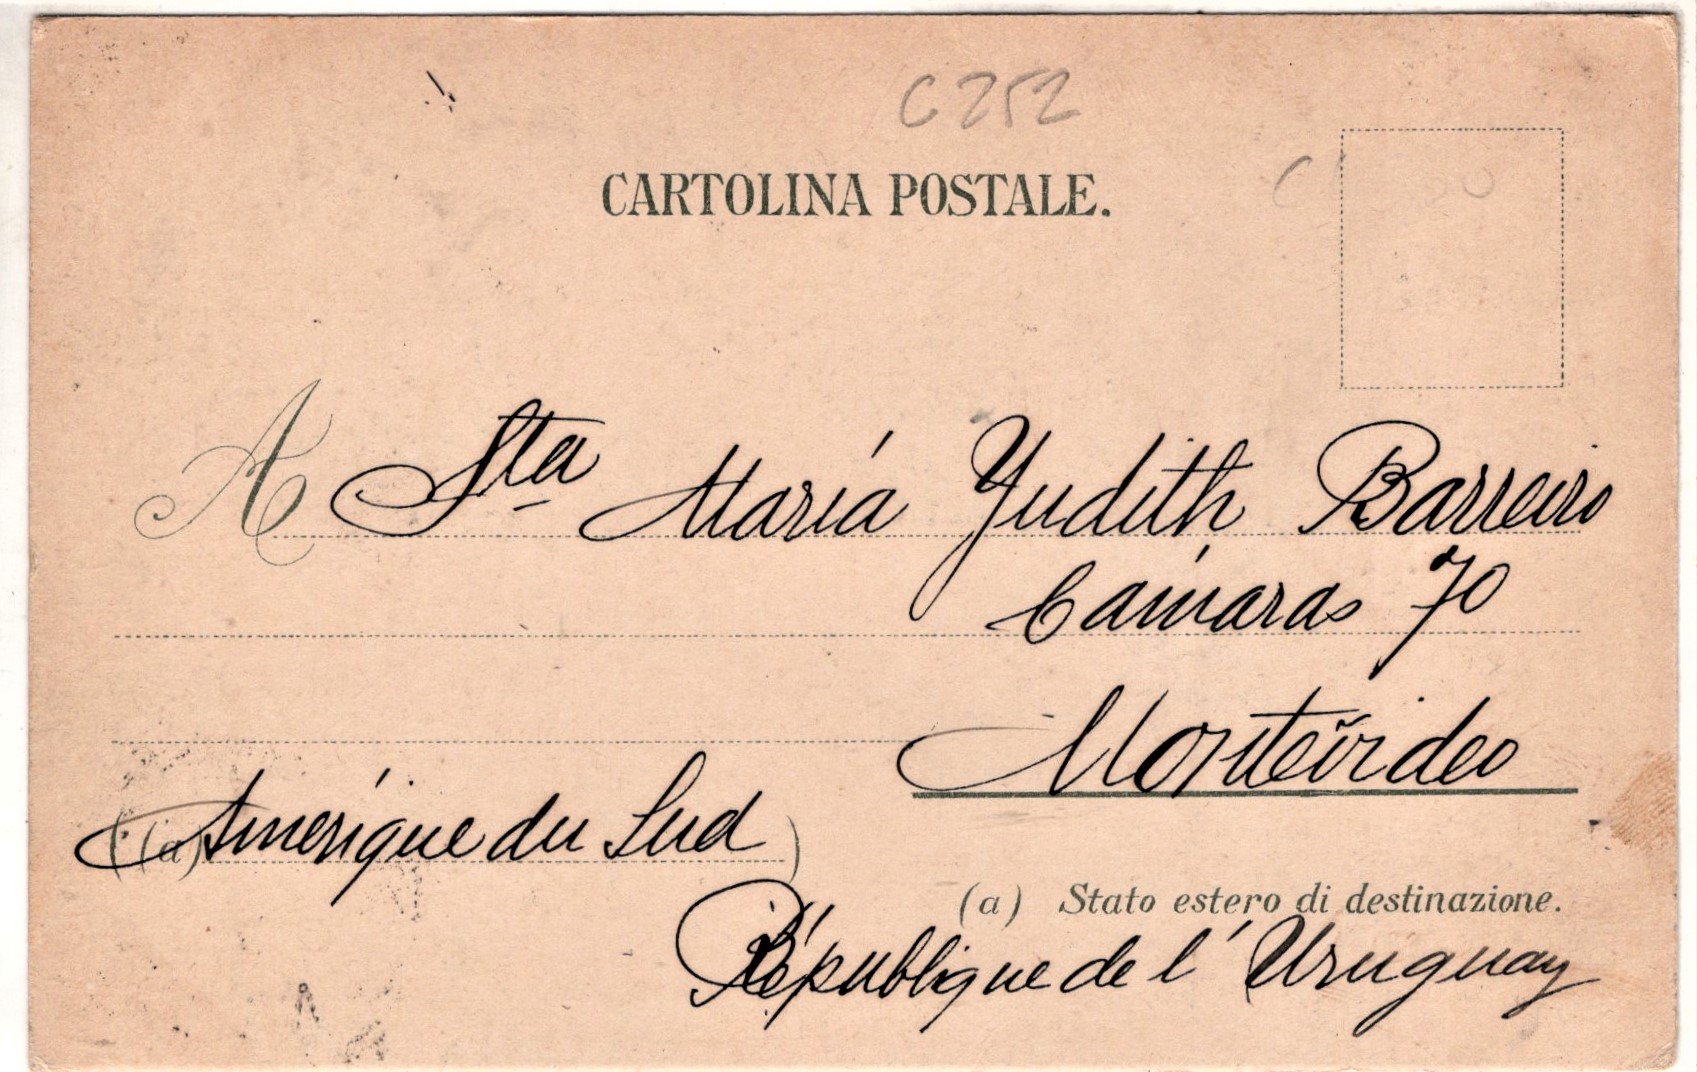 C 252
CARTOLINA POSTALE.
A Sta María Judith Barreiro
Cámaras 70
Montevideo
(a) Amérique du Sud
(a) Stato estero di destinazione.
République de l'Uruguay